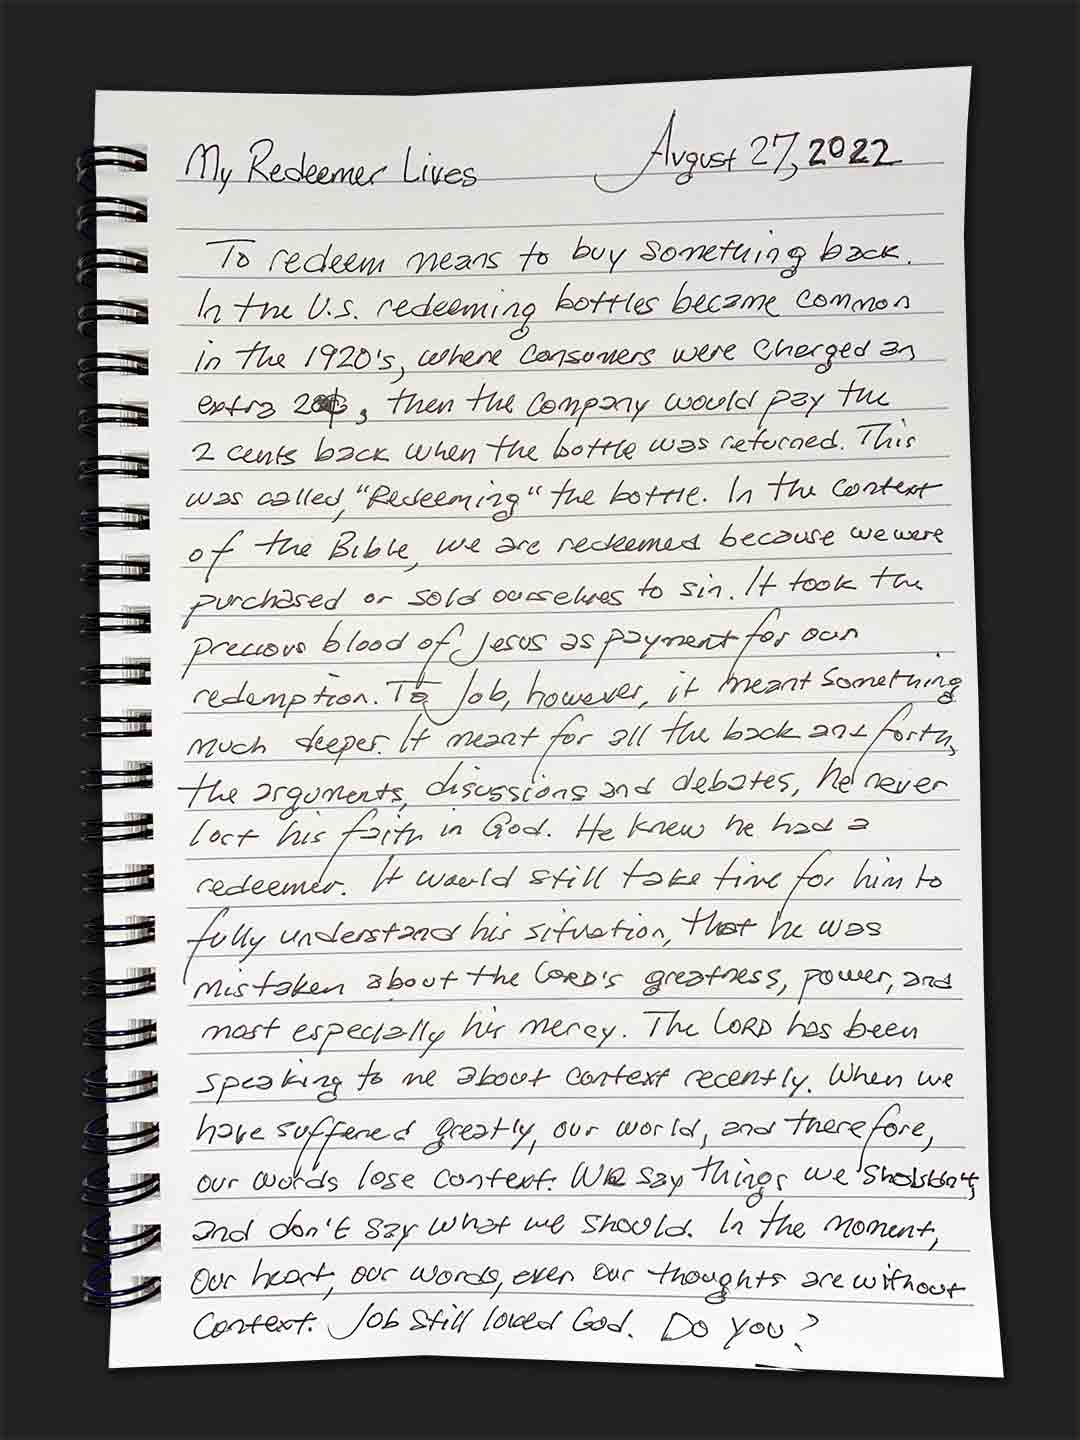 My Redeemer Lives August 27, 2022
To redeem means to buy something back.
In the U.S. redeeming bottles became common
in the 1920's, where consumers were charged an
extra 2¢, then the company would pay the
2 cents back when the bottle was returned. This
was called, "Redeeming" the bottle. In the context
of the Bible, we are redeemed because we were
purchased or sold ourselves to sin. It took the
precious blood of Jesus as payment for our
redemption. To Job, however, it meant something
much deeper. It meant for all the back and forth,
the arguments, discussions and debates, he never
lost his faith in God. He knew he had a
redeemer. It would still take time for him to
fully understand his situation, that he was
mistaken about the LORD's greatness, power, and
most especially his mercy. The LORD has been
speaking to me about context recently. When we
have suffered greatly, our world, and therefore,
our words lose context. We say things we shouldn't,
and don't say what we should. In the moment,
our heart, our words, even our thoughts are without
context. Job still loved God. Do you?